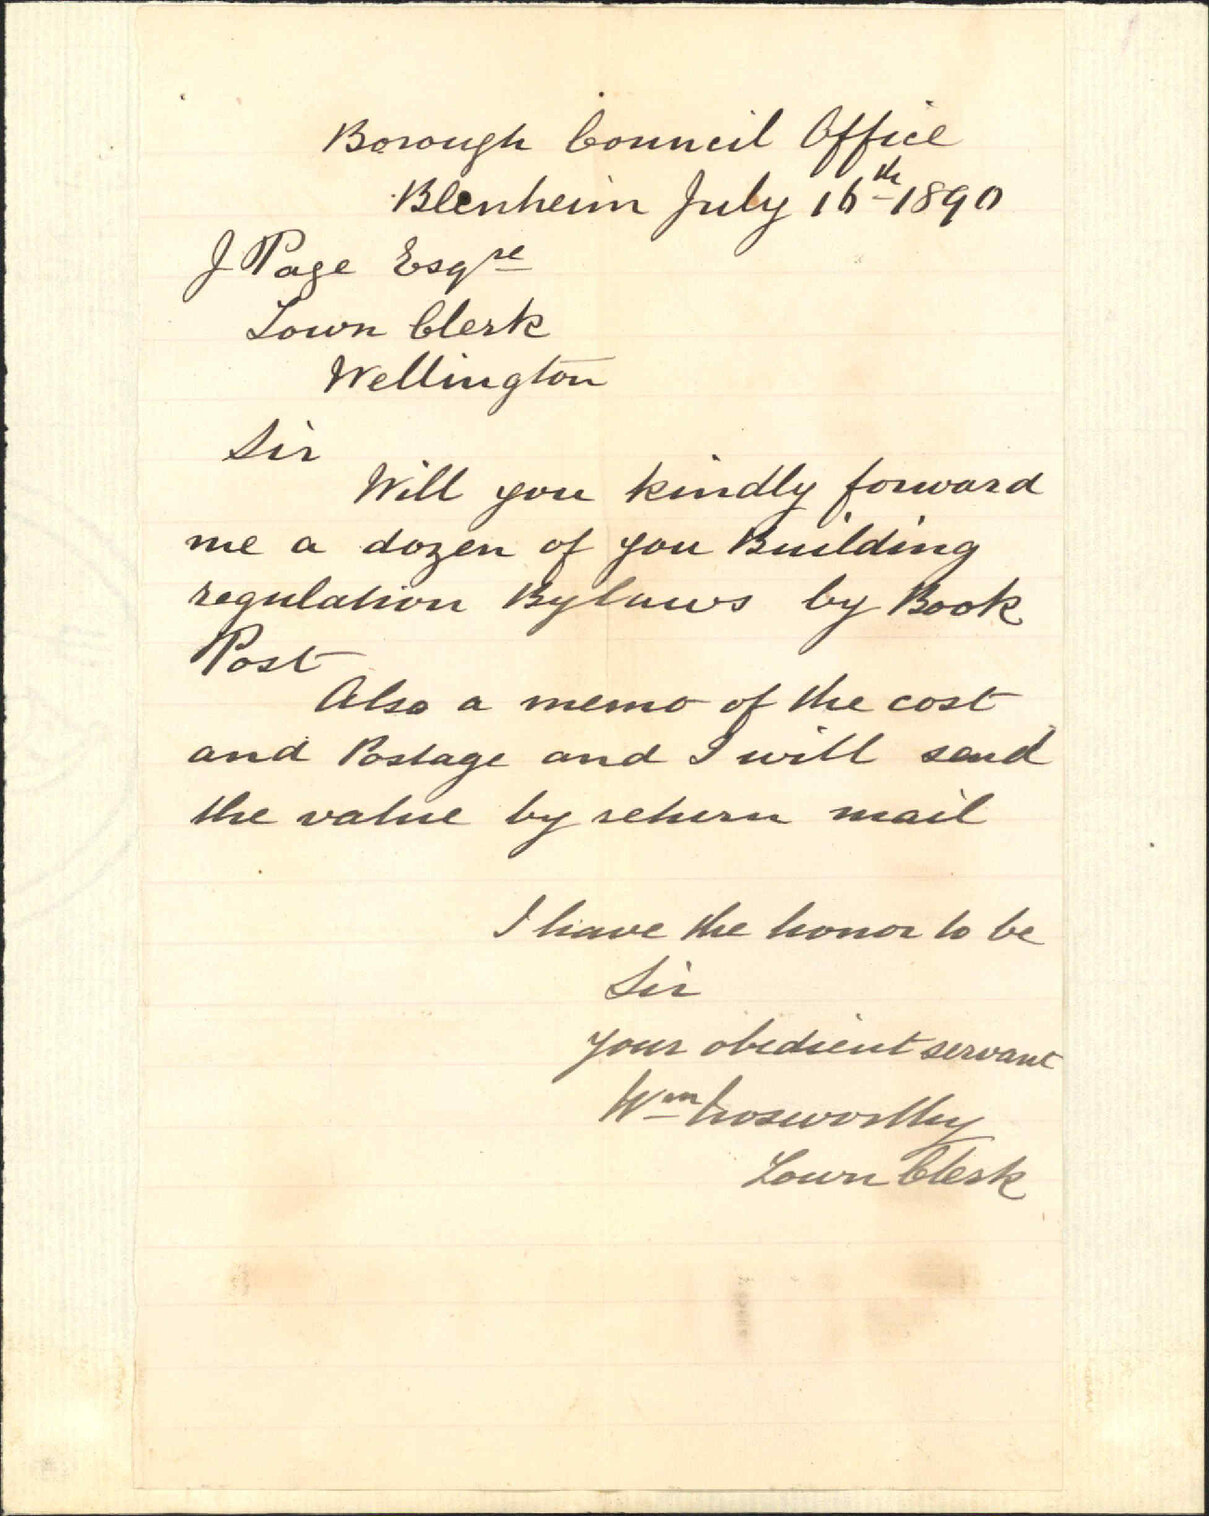 Borough Council Office
Blenheim July 16th 1890
J Page Esqre
Town Clerk
Wellington
Sir
Will you kindly forward
me a dozen of you Building
regulation Bylaws by Book
Post
Also a memo of the cost
and Postage and I will send
the value by return mail
I have the honor to be
Sir
your obedient servant
Wm
Town Clerk